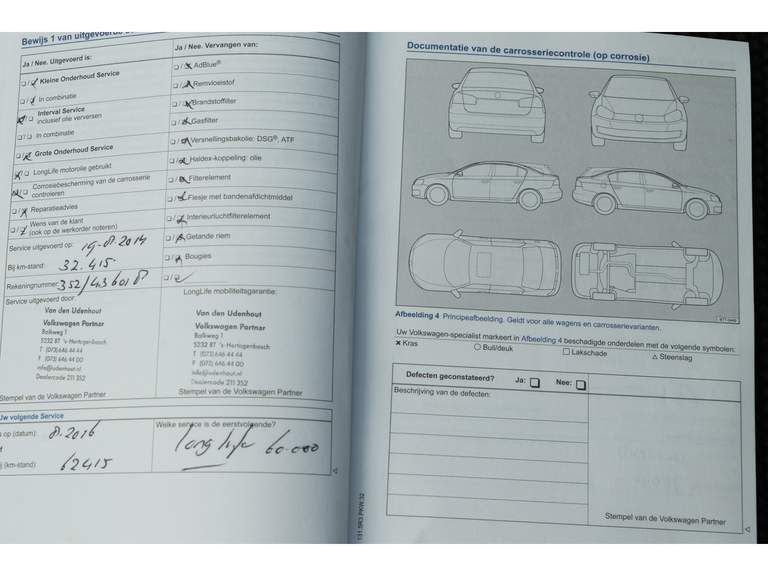 Bewijs 1 van uitgevoerde
Ja / Nee. Uitgevoerd is:
Kleine Onderhoud Service
In combinatie
Interval Service
inclusief olie verversen
In combinatie
Grote Onderhoud Service
LongLife motorolie gebruikt
Corrosiebescherming van de carrosserie
controleren
Reparatieadvies
Wens van de klant
(ook op de werkorder noteren)
Service uitgevoerd op: 19-8-2014
Bij km-stand: 32.415
Rekeningnummer: 352/436018
Service uitgevoerd door:
Van den Udenhout
Volkswagen Partner
Balkweg 1
5232 BT 's-Hertogenbosch
T (073) 646 44 44
F (073) 646 44 00
info@udenhout.nl
Dealercode 211 352
Stempel van de Volkswagen Partner
Ja / Nee. Vervangen van:
AdBlue®
Remvloeistof
Brandstoffilter
Gasfilter
Versnellingsbakolie: DSG®, ATF
Haldex-koppeling: olie
Filterelement
Flesje met bandenafdichtmiddel
Interieurluchtfilterelement
Getande riem
Bougies
LongLife mobiliteitsgarantie:
Van den Udenhout
Volkswagen Partner
Balkweg 1
5232 BT 's-Hertogenbosch
T (073) 646 44 44
F (073) 646 44 00
info@udenhout.nl
Dealercode 211 352
Stempel van de Volkswagen Partner
Uw volgende Service
op (datum): 8.2016
(km-stand): 62415
Welke service is de eerstvolgende?
long life 60.000
131.5R3.PKW.32
Documentatie van de carrosseriecontrole (op corrosie)
Afbeelding 4 Principeafbeelding. Geldt voor alle wagens en carrosserievarianten.
Uw Volkswagen-specialist markeert in Afbeelding 4 beschadigde onderdelen met de volgende symbolen:
× Kras ○ Buil/deuk □ Lakschade △ Steenslag
Defecten geconstateerd? Ja: Nee:
Beschrijving van de defecten:
Stempel van de Volkswagen Partner